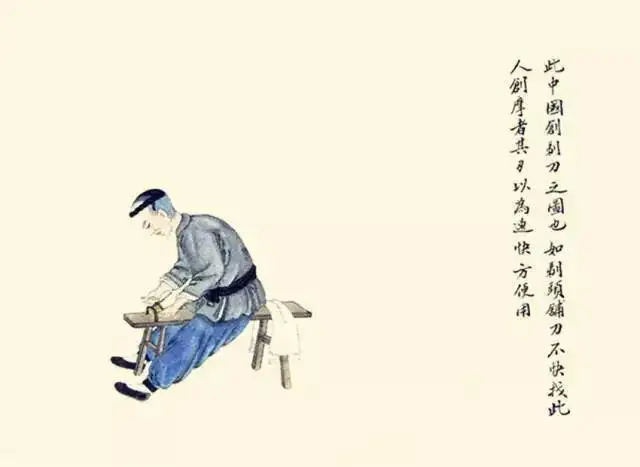 此中國創剃刀之圖也如剃頭舖刀不快找此
人創摩者其刀以為迅快方便用